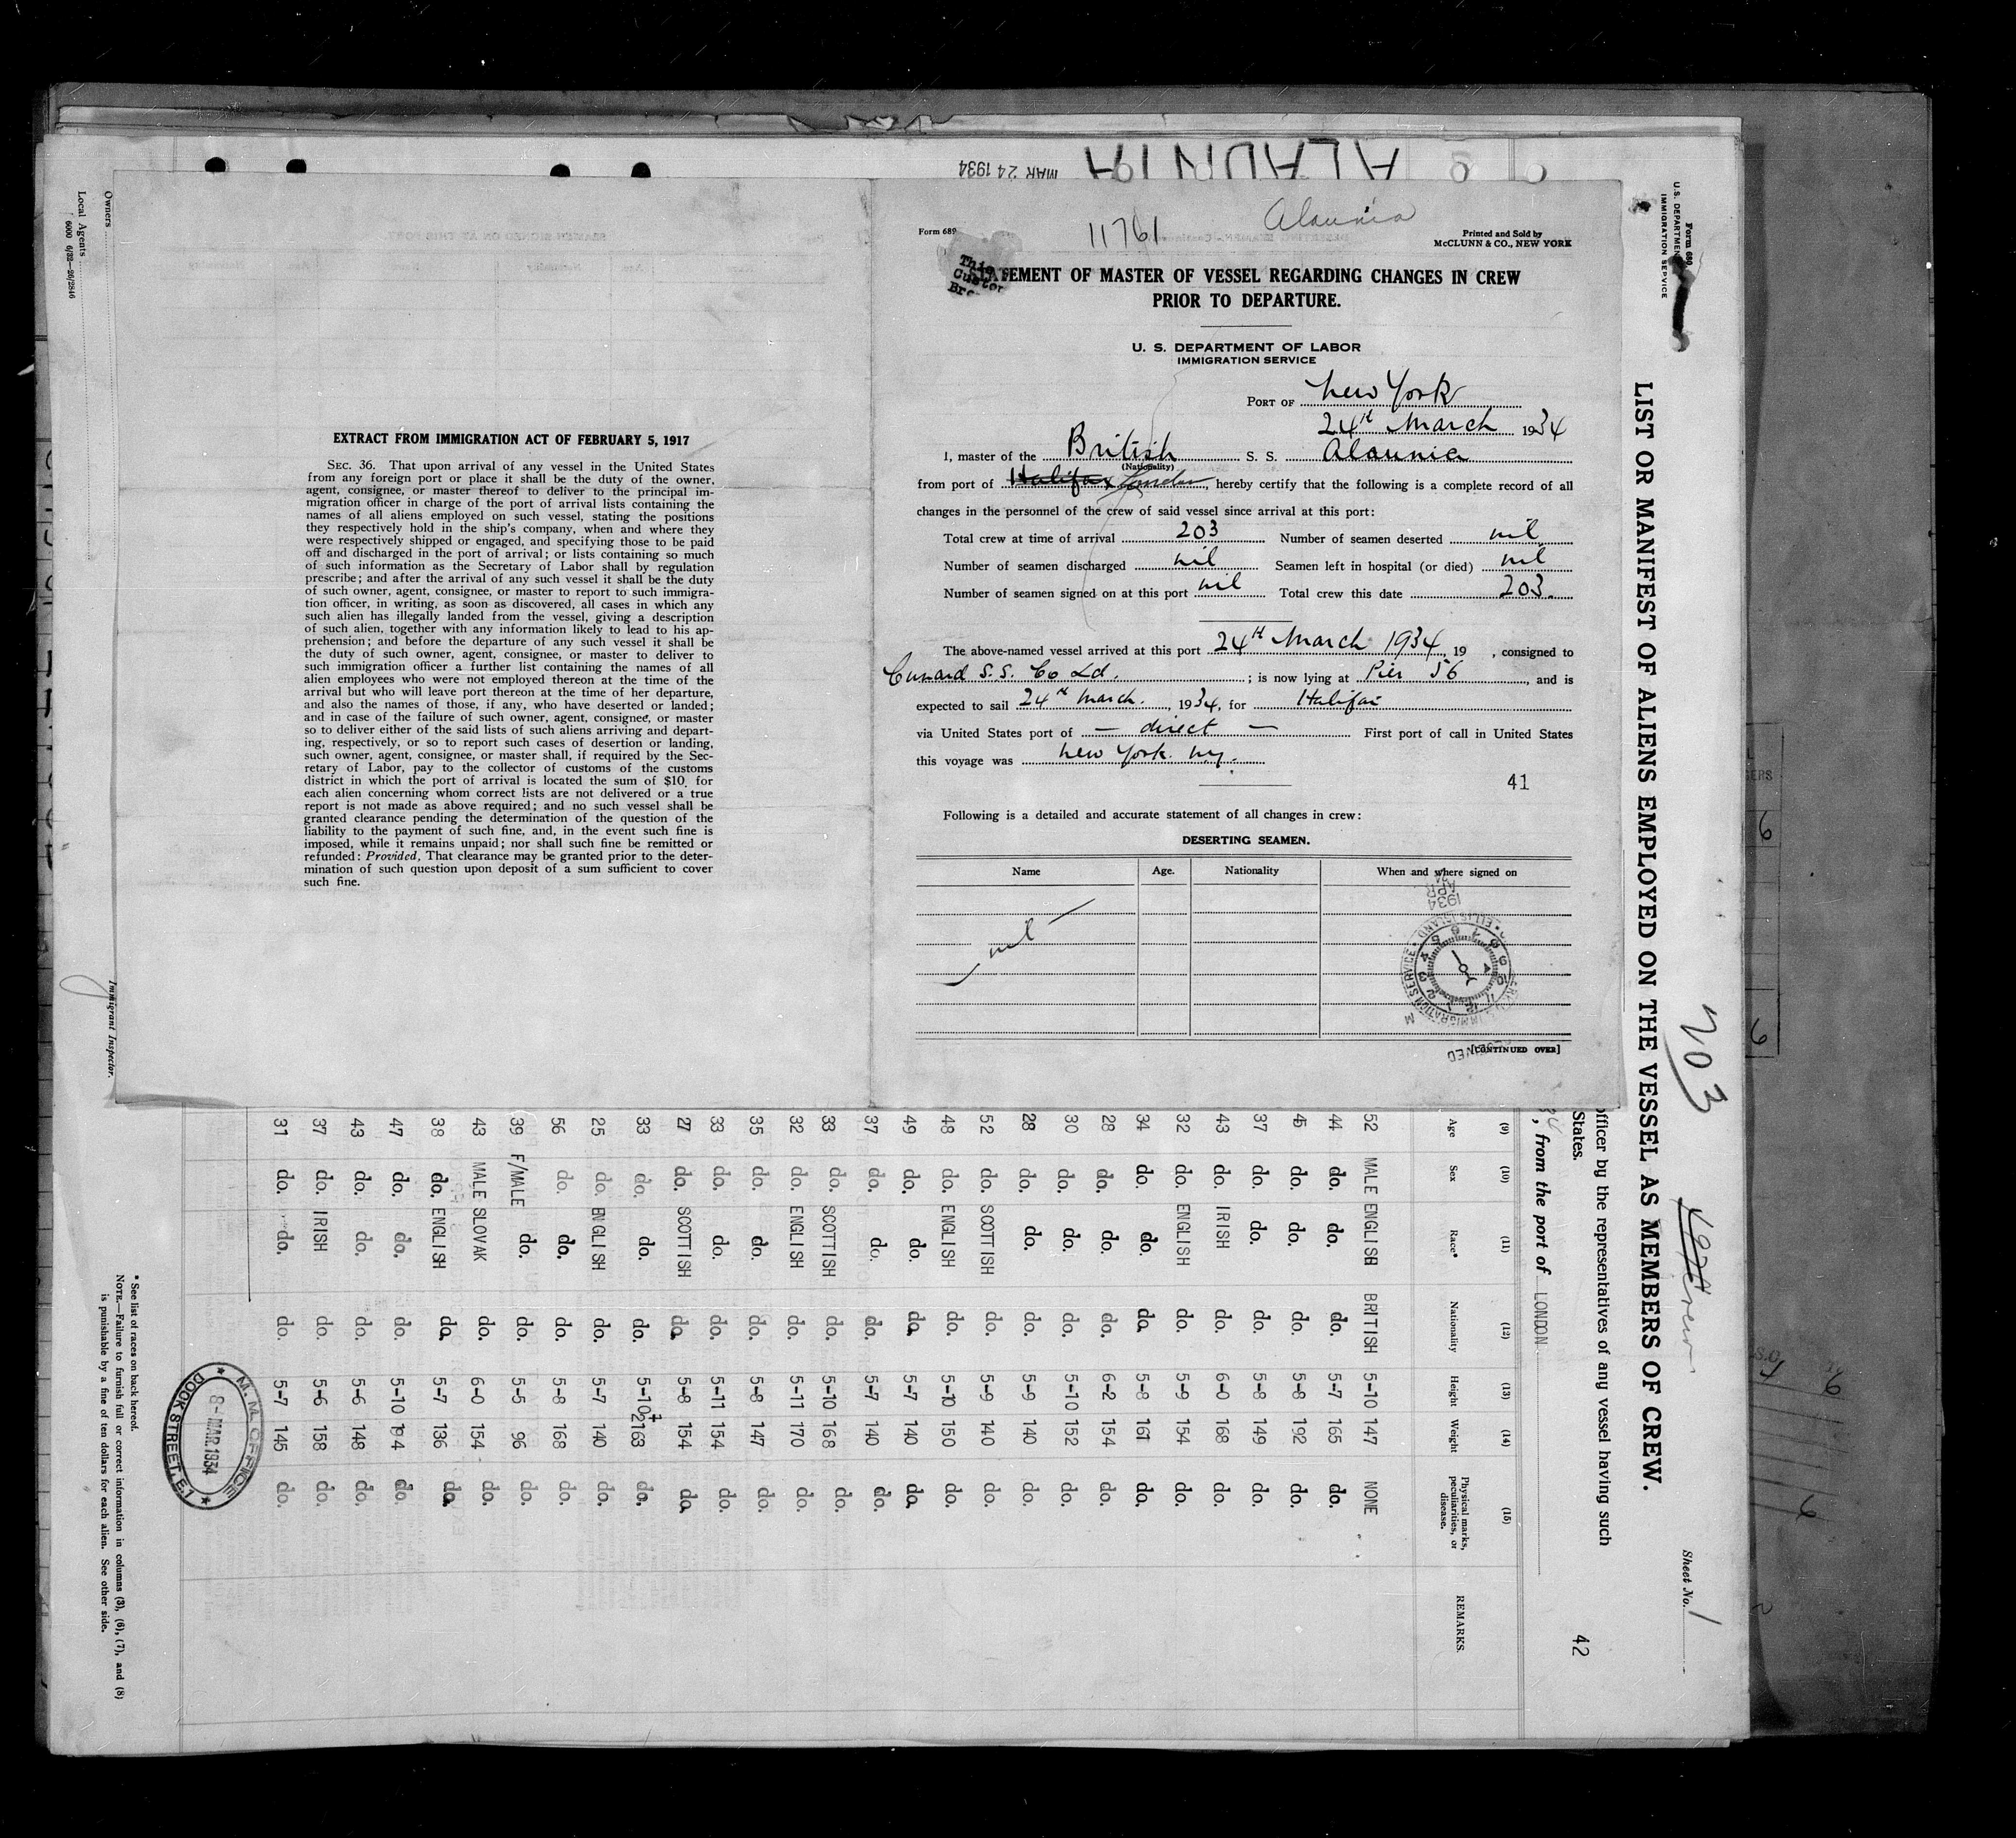 ALAUNIA
MAR 24 1934
Owners
Local Agents
6000 6/32-26/2846
Immigrant Inspector.
EXTRACT FROM IMMIGRATION ACT OF FEBRUARY 5, 1917
SEC. 36. That upon arrival of any vessel in the United States
from any foreign port or place it shall be the duty of the owner,
agent, consignee, or master thereof to deliver to the principal im-
migration officer in charge of the port of arrival lists containing the
names of all aliens employed on such vessel, stating the positions
they respectively hold in the ship's company, when and where they
were respectively shipped or engaged, and specifying those to be paid
off and discharged in the port of arrival; or lists containing so much
of such information as the Secretary of Labor shall by regulation
prescribe; and after the arrival of any such vessel it shall be the duty
of such owner, agent, consignee, or master to report to such immigra-
tion officer, in writing, as soon as discovered, all cases in which any
such alien has illegally landed from the vessel, giving a description
of such alien, together with any information likely to lead to his ap-
prehension; and before the departure of any such vessel it shall be
the duty of such owner, agent, consignee, or master to deliver to
such immigration officer a further list containing the names of all
alien employees who were not employed thereon at the time of the
arrival but who will leave port thereon at the time of her departure,
and also the names of those, if any, who have deserted or landed;
and in case of the failure of such owner, agent, consignee, or master
so to deliver either of the said lists of such aliens arriving and depart-
ing, respectively, or so to report such cases of desertion or landing,
such owner, agent, consignee, or master shall, if required by the Sec-
retary of Labor, pay to the collector of customs of the customs
district in which the port of arrival is located the sum of $10 for
each alien concerning whom correct lists are not delivered or a true
report is not made as above required; and no such vessel shall be
granted clearance pending the determination of the question of the
liability to the payment of such fine, and, in the event such fine is
imposed, while it remains unpaid; nor shall such fine be remitted or
refunded: Provided, That clearance may be granted prior to the deter-
mination of such question upon deposit of a sum sufficient to cover
such fine.
Form 689
11761
Alaunia
Printed and Sold by
McCLUNN & CO., NEW YORK
This
Custor
STATEMENT OF MASTER OF VESSEL REGARDING CHANGES IN CREW
PRIOR TO DEPARTURE.
U. S. DEPARTMENT OF LABOR
IMMIGRATION SERVICE
PORT OF New York
24th March 1934
I, master of the British S. S. Alaunia
(Nationality)
from port of Halifax London, hereby certify that the following is a complete record of all
changes in the personnel of the crew of said vessel since arrival at this port:
Total crew at time of arrival 203 Number of seamen deserted nil
Number of seamen discharged nil Seamen left in hospital (or died) nil
Number of seamen signed on at this port nil Total crew this date 203.
The above-named vessel arrived at this port 24th March 1934, 19 , consigned to
Cunard S.S. Co Ld. ; is now lying at Pier 56, and is
expected to sail 24th March., 1934, for Halifax
via United States port of — direct — First port of call in United States
this voyage was New York. ny.
41
Following is a detailed and accurate statement of all changes in crew:
DESERTING SEAMEN.
Name Age. Nationality When and where signed on
nil
1934
APR
IMMIGRATION SERVICE
ELLIS ISLAND
[CONTINUED OVER]
Form 680
U. S. DEPARTMENT
IMMIGRATION SERVICE
203
Sheet No. 1
LIST OR MANIFEST OF ALIENS EMPLOYED ON THE VESSEL AS MEMBERS OF CREW.
officer by the representatives of any vessel having such
States.
42
, from the port of LONDON
(9) (10) (11) (12) (13) (14) (15)
Age Sex Race* Nationality Height Weight Physical marks, peculiarities, or disease. REMARKS.
52 MALE ENGLISH BRITISH 5-10 147 NONE
44 do. do. do. 5-7 165 do.
45 do. do. do. 5-8 192 do.
37 do. do. do. 5-8 149 do.
43 do. IRISH do. 6-0 168 do.
32 do. ENGLISH do. 5-9 154 do.
34 do. do. do. 5-8 161 do.
28 do. do. do. 6-2 154 do.
30 do. do. do. 5-10 152 do.
28 do. do. do. 5-9 140 do.
52 do. SCOTTISH do. 5-9 140 do.
48 do. ENGLISH do. 5-10 150 do.
49 do. do. do. 5-7 140 do.
37 do. do. do. 5-7 140 do.
33 do. SCOTTISH do. 5-10 168 do.
32 do. ENGLISH do. 5-11 170 do.
35 do. do. do. 5-8 147 do.
33 do. do. do. 5-11 154 do.
27 do. SCOTTISH do. 5-8 154 do.
33 do. do. do. 5-10½ 163 do.
25 do. ENGLISH do. 5-7 140 do.
56 do. do. do. 5-8 168 do.
39 F/MALE do. do. 5-5 96 do.
43 MALE SLOVAK do. 6-0 154 do.
38 do. ENGLISH do. 5-7 136 do.
47 do. do. do. 5-10 194 do.
43 do. do. do. 5-6 148 do.
37 do. IRISH do. 5-6 158 do.
31 do. do. do. 5-7 145 do.
M. M. OFFICE
8- MAR. 1934
DOCK STREET. E.1
* See list of races on back hereof.
NOTE.—Failure to furnish full or correct information in columns (3), (6), (7), and (8)
is punishable by a fine of ten dollars for each alien. See other side.